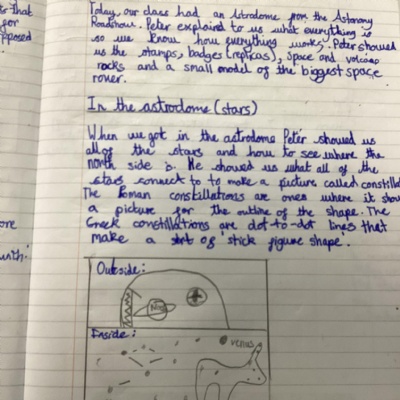 Today, our class had an Astrodome from the Astonomy
Roadshow. Peter explained to us what everything is
so we know how everything works. Peter showed
us the stamps, badges (replicas), space and volcano
rocks and a small model of the biggest space
rover.
In the astrodome (stars)
When we got in the astrodome Peter showed us
all of the stars and how to see where the
north side is. He showed us what all of the
stars connect to to make a picture called constella
The Roman constillations are ones where it show
a picture for the outline of the shape. The
Greek constillations are dot-to-dot lines that
make a sort of stick figure shape.
Outside:
Inside:
venus
that
for
pposed
ore
with.